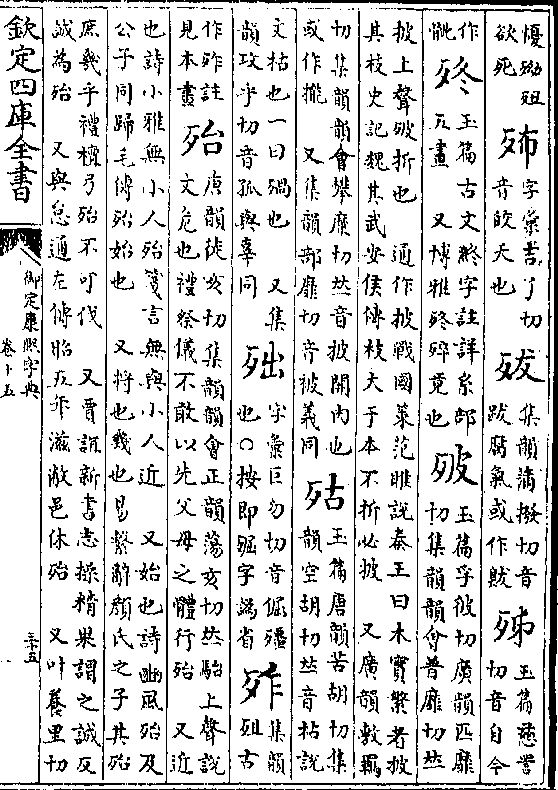 慢㱥殂
欲死
㱛
字彙吉了切
音皎夭也
㱚
集韻蒲撥切音
跋腐氣或作䟦
㱞
玉篇慈嘗
切音自今
作
骴
㱡
玉篇古文終字註詳糸部
五畫 又博雅㱡殚竟也
㱟
玉篇孚彼切廣韻匹靡
切集韻韻會普靡切𠀤
披上聲㱟折也 通作披戰國策范睢說秦王曰木實繁者披
其枝史記魏其武安侯傳枝大于本不折必披 又廣韻敷羈
切集韻韻會攀糜切𠀤音披開肉也
或作䍦 又集韻部靡切音被義同
㱠
玉篇唐韻苦胡切集
韻空胡切𠀤音枯說
文枯也一曰殙也 又集
韻攻乎切音孤與辜同
㱝
字彙巨勿切音倔殭
也○按卽𣨢字譌省
㱜
集韻
殂古
作㱜註
見本畫
殆
唐韻徒亥切集韻韻會正韻蕩亥切𠀤駘上聲說
文危也禮祭儀不敢以先父母之體行殆 又近
也詩小雅無小人殆箋言無與小人近 又始也詩豳風殆及
公子同歸毛傳殆始也 又將也幾也易繫辭顏氏之子其殆
庶幾乎禮檀弓殆不可伐 又賈誼新書志操精果謂之誠反
誠為殆 又與怠通左傳昭五年滋敝邑休殆 又叶養里切
欽定四庫全書
御定康熙字典
卷十五
三十五